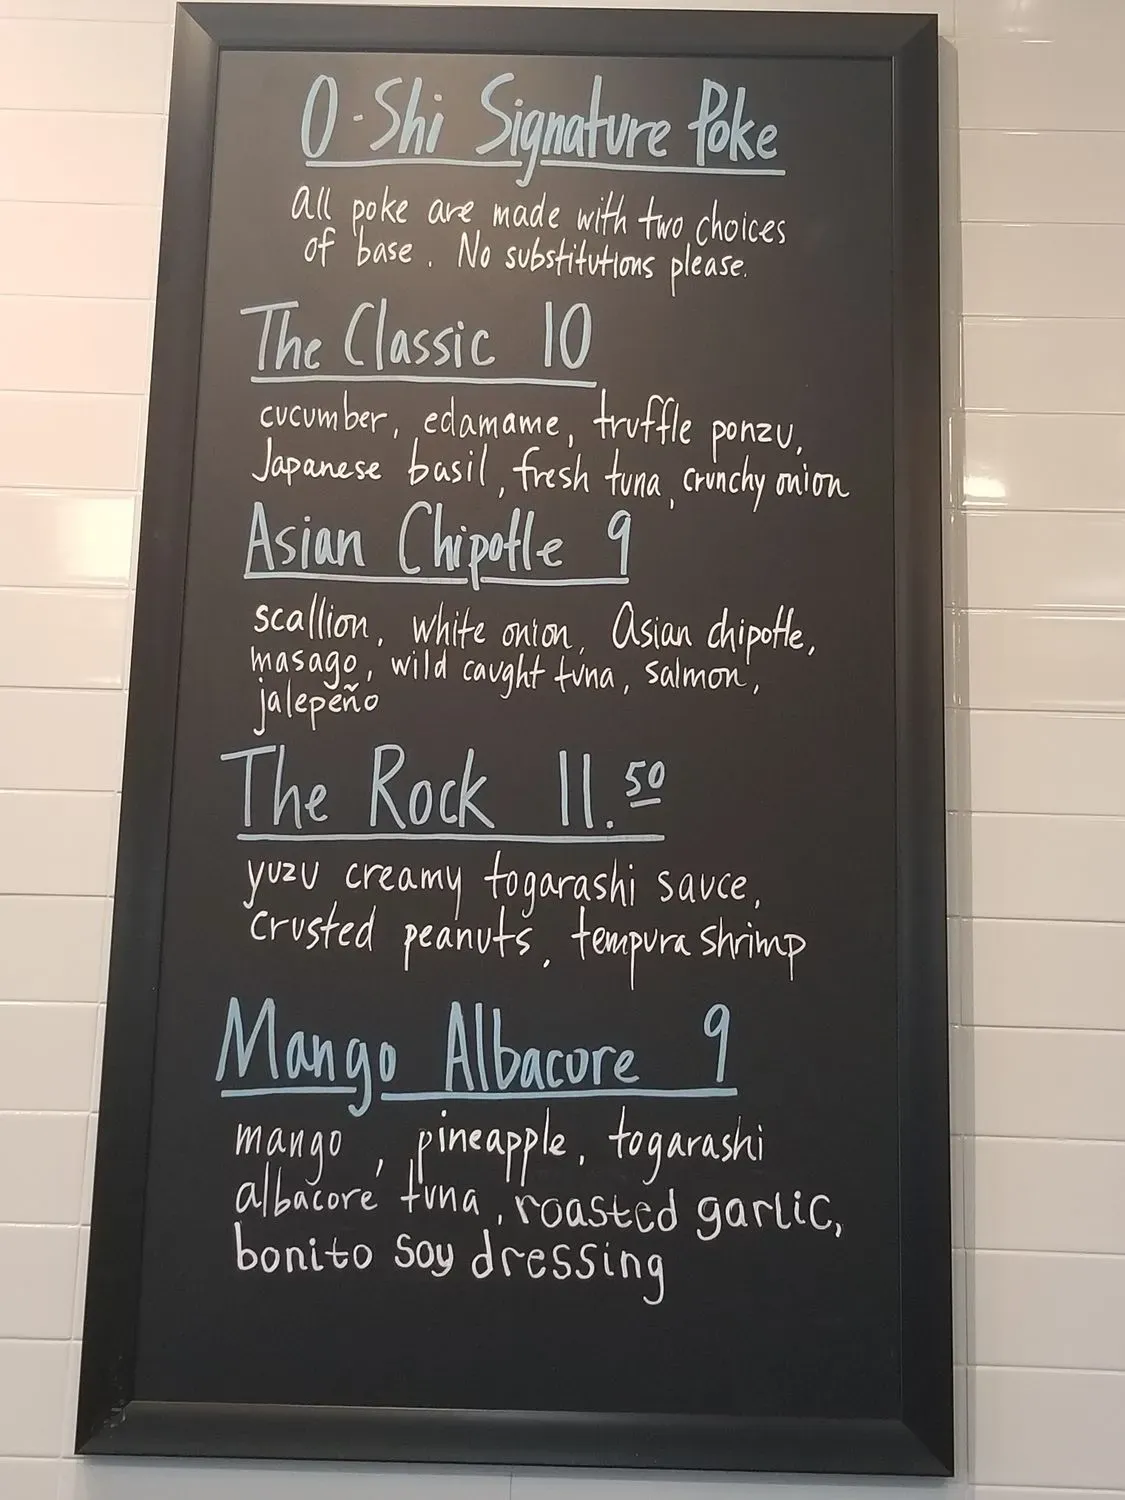 O-Shi Signature Poke
all poke are made with two choices
of base. No substitutions please.
The Classic 10
cucumber, edamame, truffle ponzu,
Japanese basil, fresh tuna, crunchy onion
Asian Chipotle 9
scallion, white onion, Asian chipotle,
masago, wild caught tuna, salmon,
jalepeño
The Rock 11.50
yuzu creamy togarashi sauce,
crusted peanuts, tempura shrimp
Mango Albacore 9
mango, pineapple, togarashi
albacore tuna, roasted garlic,
bonito soy dressing